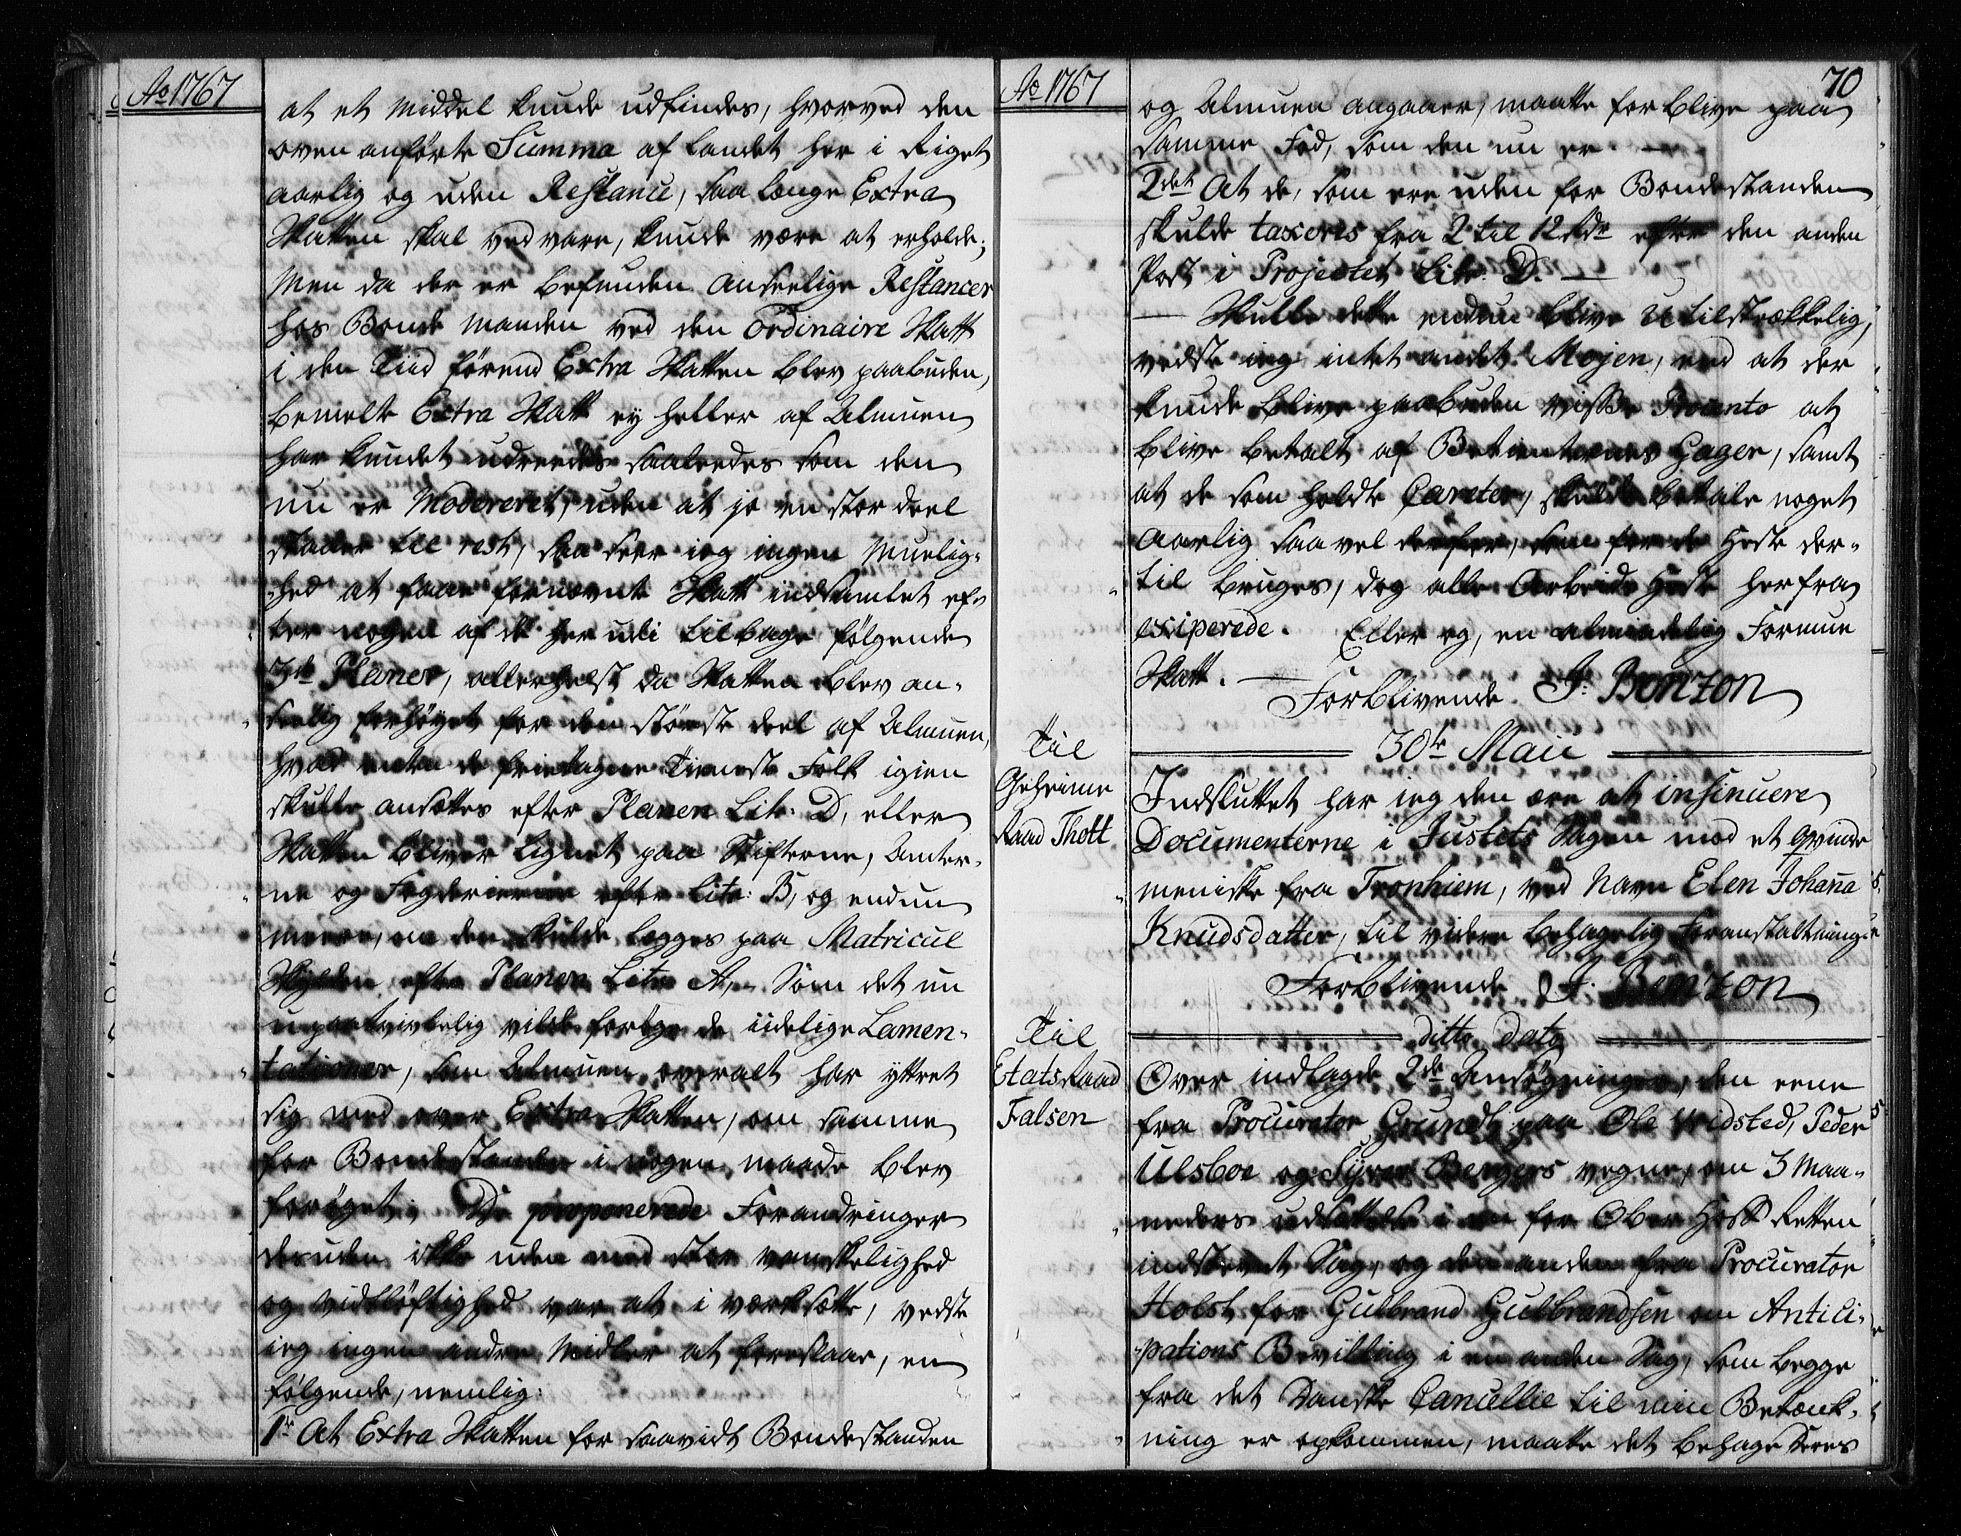 Ao 1767
at et middel kunde udfindes, hvorved den
oven anførte Summa af Landet her i Riget
aarlig og uden Restance, saa længe Extra
Skatten skal vedvare, kunde være at erholde;
Men da der er befunden anseelige Restancer
hos Bonde Manden ved den Ordinaire Skatt
i den Tiid førend Extra Skatten blev paabuden,
bemelte Extra Skatt ey heller af Almuen
har kundet udreedes saaleedes som den
nu er Modereret, uden at jo en stor deel
staaer til rest, saa seer ieg ingen Muelig-
hed at faae fornævnte Skatt indsamlet ef-
ter nogen af de her udi tilbage følgende
3de Planer, allerhelst da Skatten blev an-
seelig forhøyet for den største deel af Almuen,
hvad enten de frietagne Tienest Folk igien
skulle ansættes efter Planen Litr: D, eller
Skatten bliver lignet paa Stifterne, Amter-
ne og Fogderierne efter Litr: B, og endnu
meere, om den skulde lægges paa Matricul
Skylden efter Planen Litr A, som det nu
upaatvivlelig vilde forøge de iidelige Lamen-
tationer, som Almuen overalt har yttret
sig med over Extra Skatten, om samme
for Bondestanden i nogen maade blev
forøget; De proponerede Forandringer
desuden ikke uden med stor vanskelighed
og vidtløftighed var at i værksætte, vedste
ieg ingen andre Midler at foreslaae, en
følgende, nemlig:
1te At Extra Skatten for saavidt Bondestanden
Ao 1767
70
og Almuen angaaer, maatte forblive paa
samme Fod, som den nu er. —
2det At de, som ere uden for Bondestanden
skulde taxeres fra 2 til 12 rdr efter den anden
Post i Projectet Litr. D. —
— Skulle dette endnu blive Utilstrækkelig,
vedste ieg intet andet Mojen, end at der
kunde blive paabuden visse Procento at
blive betalt af Betienternes Gager, samt
at de som holdt Careter, skulde betale noget
Aarlig saavel derfor, som for de Heste der-
til bruges, dog alle Arbeids Heste herfra
exciperede. Eller og, en almindelig Formue
Skatt. — Forblivende J: Benzon
30te Maii
Til
Geheime
Raad Thott
Indsluttet har ieg den ære at insinuere
Documenterne i Justets Sagen mod et qvinde
meniske fra Tronhiem, ved Navn Elen Johana
Knudsdatter, til videre behagelig Foranstaltning
Forblivende J. Benzon
ditto dato
Til
Etats Raad
Falsen
Over indlagde 2de Ansøgninger, den eene
fra Procurator Grundt paa Ole Vidsted, Peder
Ulsboe og Syver Bergers vegne, om 3 Maa-
neders udsættelse i en for Ober Hoff Retten
indstevnt Sag, og den anden fra Procurator
Holst for Gulbrand Gulbrandsen om Antici-
pations Bevilling i en anden Sag, som begge
fra det Danske Cancellie til min Betænk-
ning er opkommen, maatte det behage Deres